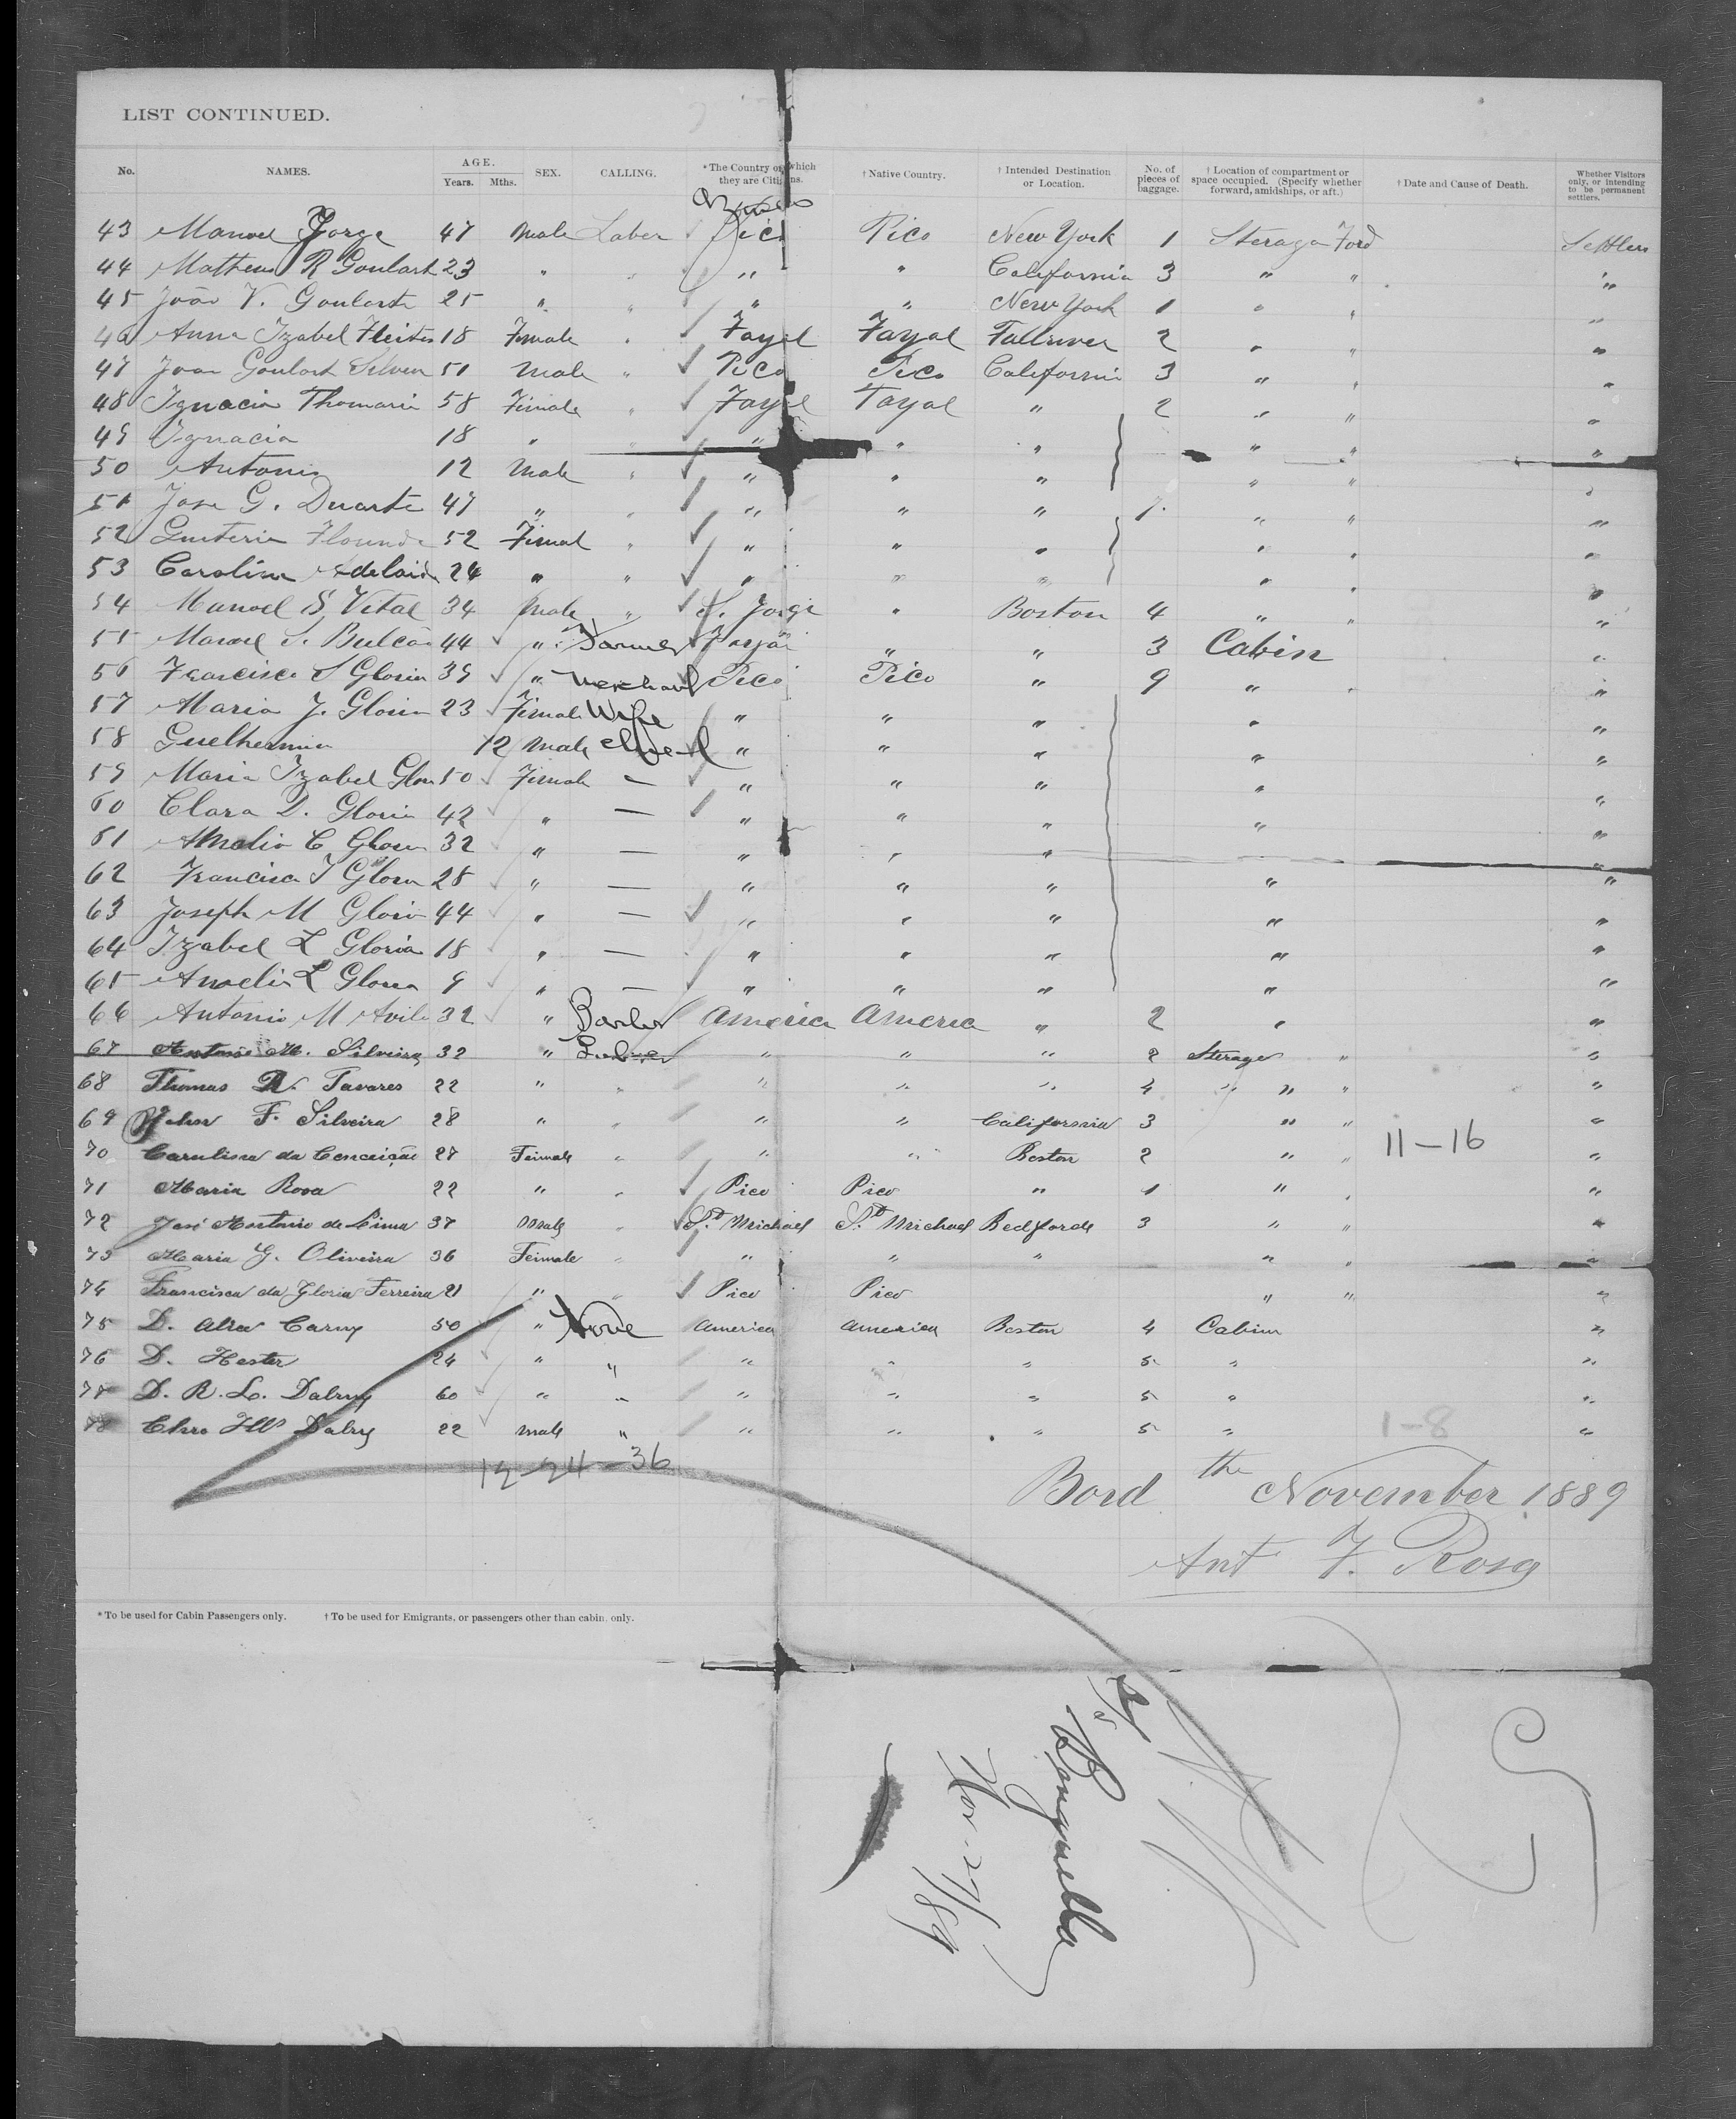 LIST CONTINUED.
No. NAMES. AGE. Years. Mths. SEX. CALLING. *The Country of which they are Citizens. †Native Country. †Intended Destination or Location. No. of pieces of baggage. †Location of compartment or space occupied. (Specify whether forward, amidships, or aft.) †Date and Cause of Death. Whether Visitors only, or intending to be permanent settlers.
43 Manoel Jorge 47 Male Laber Pico Pico New York 1 Sterage Ford Settlers
44 Matheus R Goulart 23 " " " " California 3 " " "
45 João V. Goularte 25 " " " " New York 1 " " "
46 Anna Izabel Fleites 18 Female " Fayal Fayal Fallriver 2 " " "
47 Joao Goulart Silveir 51 Male " Pico Pico California 3 " " "
48 Ignacia Thomasia 58 Female " Fayal Fayal " 2 " " "
49 Ignacia 18 " " " " " " " "
50 Antonio 12 Male " " " " " " "
51 Jose G. Duarte 47 " " " " " 1 " " "
52 52 Fimal " " " " " " "
53 Carolina Adelaide 24 " " " " " " " "
54 Manoel S Vital 34 Male " S. Jorge " Boston 4 " " "
55 Manoel S. Bulcão 44 " Farmer Fayal " " 3 Cabin "
56 Francisco S Gloria 39 " Merchant Pico Pico " 9 " "
57 Maria J. Gloria 23 Fimale Wife " " " " "
58 Guelhermina 12 Male " " " " "
59 Maria Izabel Glori 50 Fimale — " " " " "
60 Clara D. Gloria 42 " — " " " " "
61 Amelia C Gloria 32 " — " " " " "
62 Francisca J Gloria 28 " — " " " " "
63 Joseph M Gloria 44 " — " " " " "
64 Izabel L Gloria 18 " — " " " " "
65 Amelia L Gloria 9 " — " " " " "
66 Antonio M Avila 32 " Barber America America " 2 " "
67 Antonio M. Silveira 32 " Laber " " " 2 Sterage " "
68 Thomas R. Tavares 22 " " " " " 4 " " "
69 John F. Silveira 28 " " " " California 3 " " "
70 Carulina da Conceição 27 Feimale " " " Boston 2 " " " 11-16
71 Maria Rosa 22 " " Pico Pico " 1 " " "
72 José Antonio de Lima 37 Male " St. Michael St. Michael Bedforde 3 " " "
73 Maria G. Oliveira 36 Feimale " " " " " " "
74 Francisca da Gloria Ferreira 21 " " Pico Pico " " "
75 D. Carny 50 " None America America Boston 4 Cabim "
76 D. Hester 24 " " " " " 5 " "
77 D. R. L. Dabny 60 " " " " " 5 " "
78 Dabny 22 Male " " " " 5 " " 1-8
12-24-36
Bord the November 1889
Ant F. Rosa
*To be used for Cabin Passengers only. †To be used for Emigrants, or passengers other than cabin, only.
Benguella
Nov 27/89